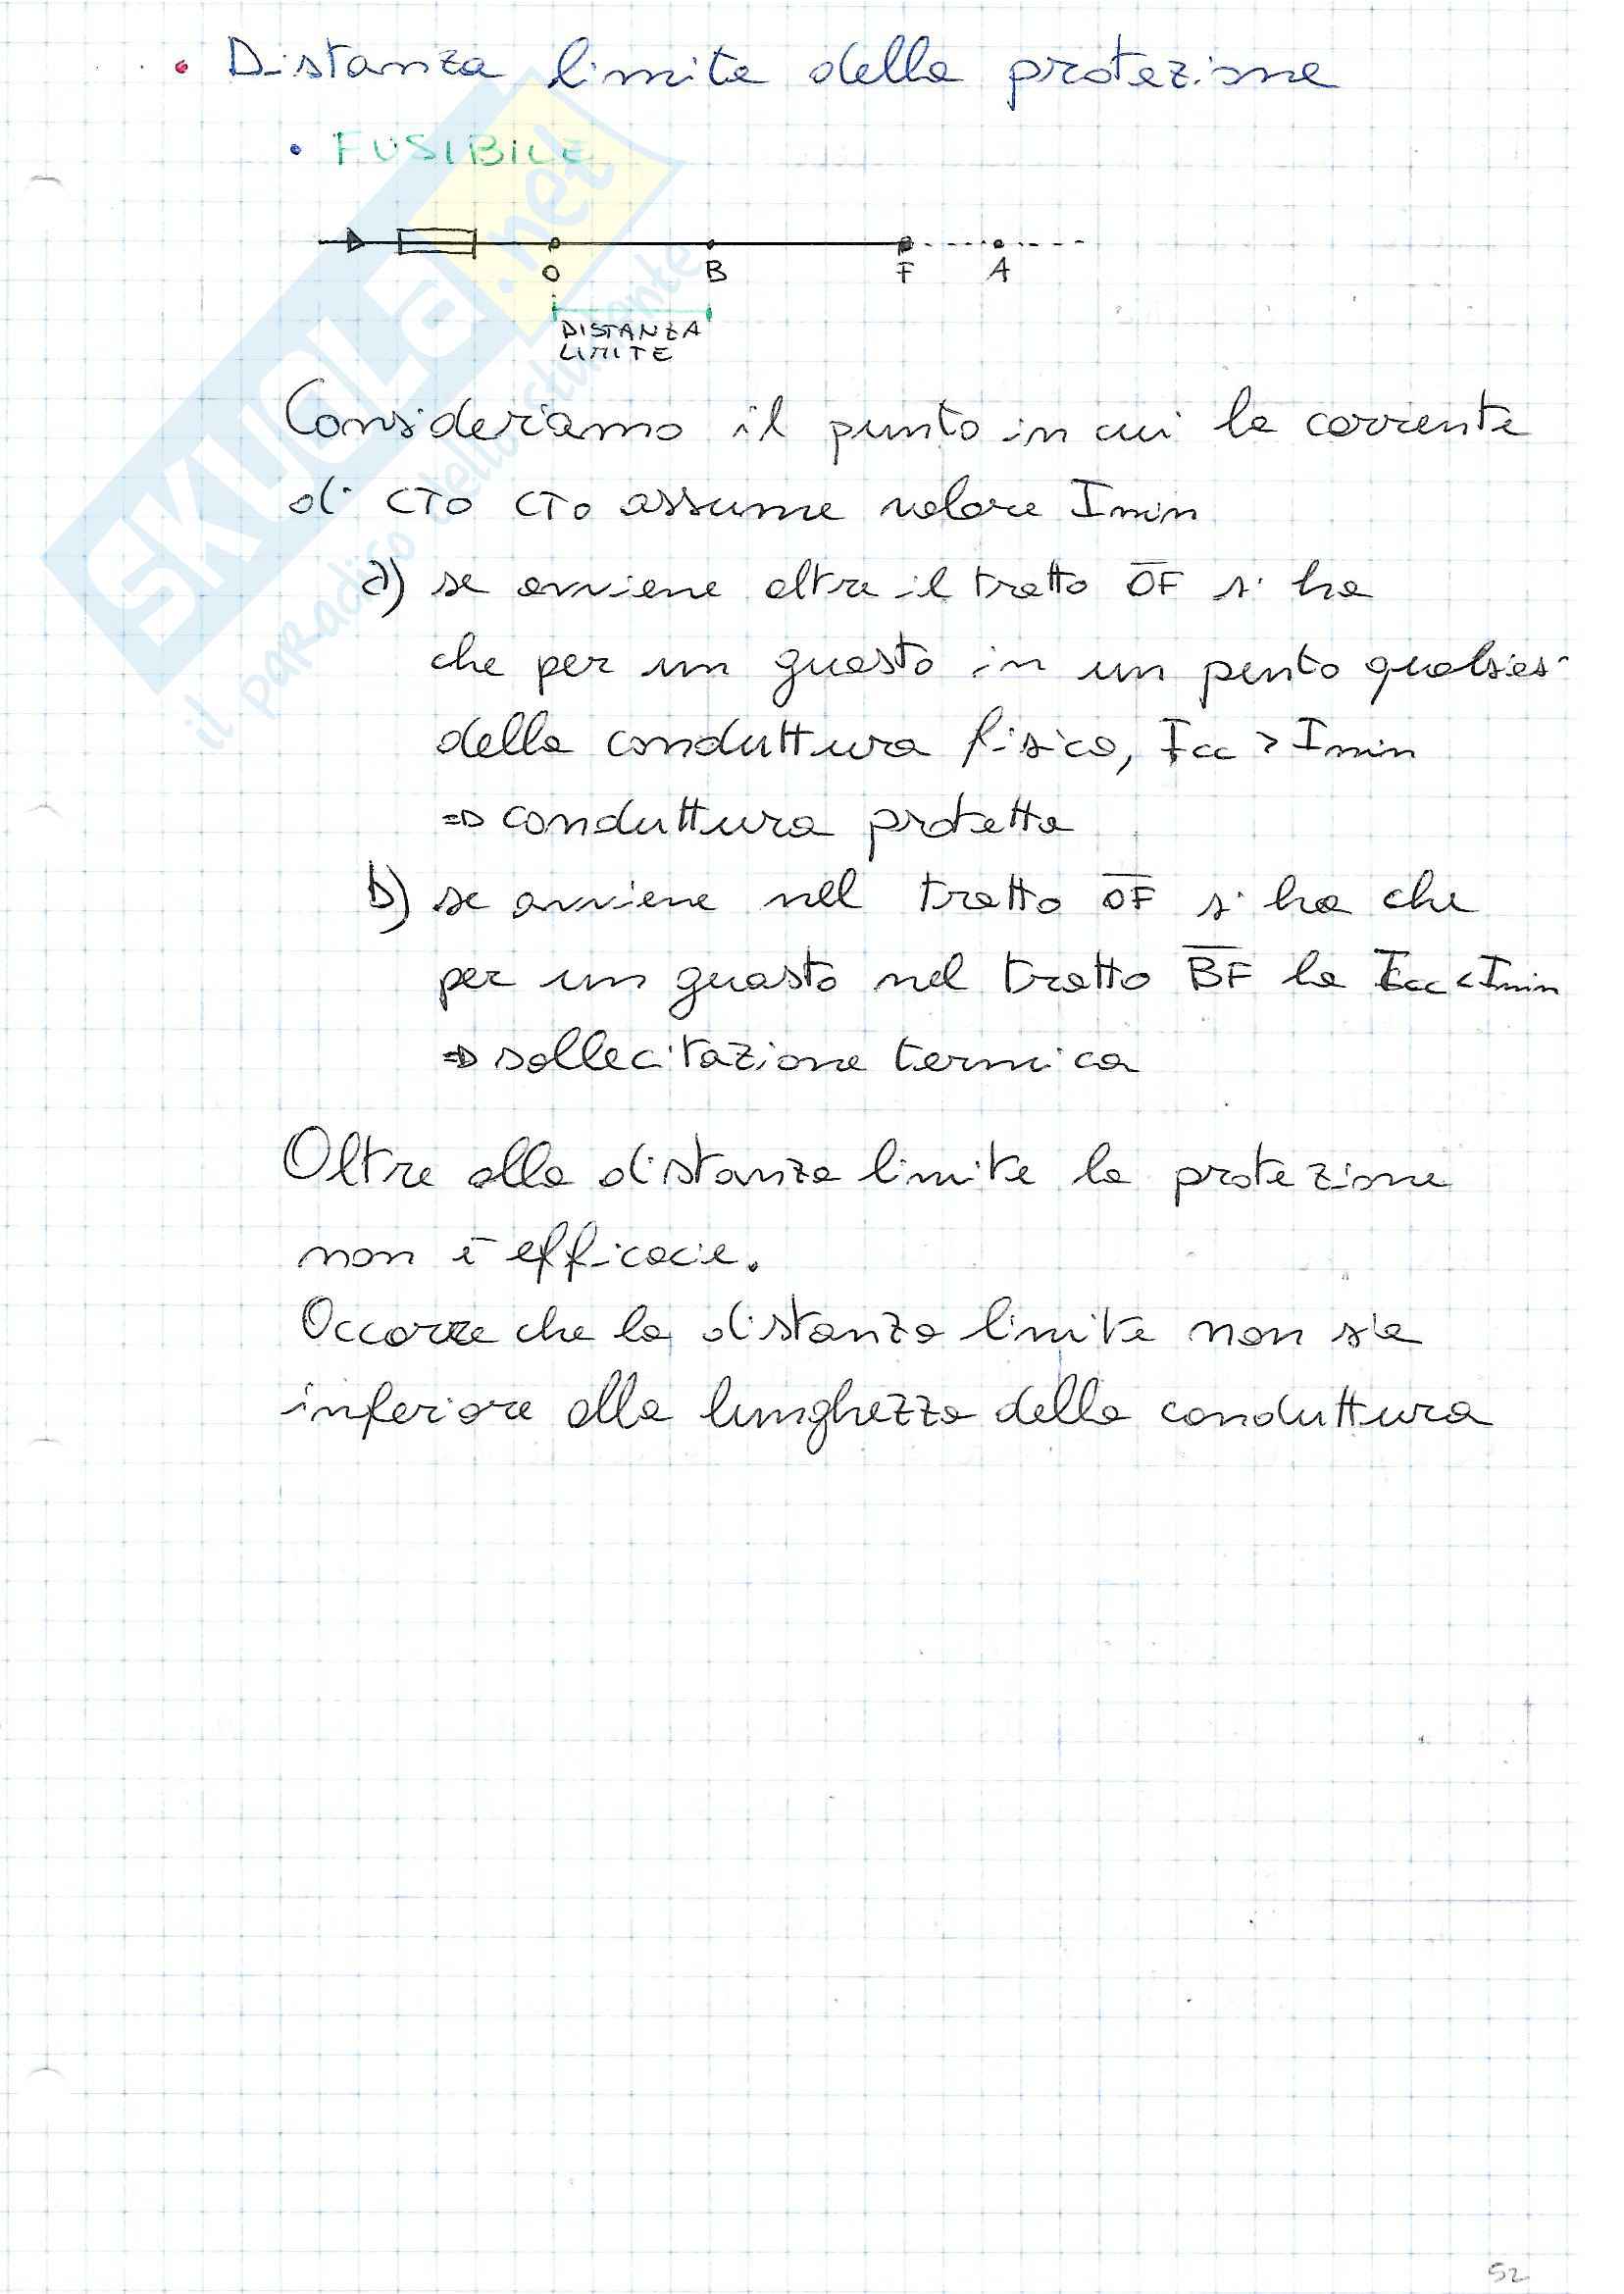 • Distanza limite della protezione
• FUSIBILE
O B F A
DISTANZA
LIMITE
Consideriamo il punto in cui la corrente
di CTO CTO assume valore Imin
a) se avviene oltre il tratto OF si ha
che per un guasto in un punto qualsiasi
della conduttura fisica, Icc > Imin
⇒ conduttura protetta
b) se avviene nel tratto OF si ha che
per un guasto nel tratto BF la Icc < Imin
⇒ sollecitazione termica
Oltre alla distanza limite la protezione
non è efficacie.
Occorre che la distanza limite non sia
inferiore alla lunghezza della conduttura
52
SKUOLA.net
il paradiso dello studente